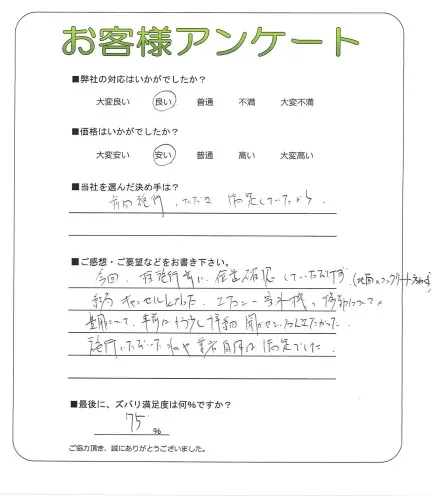 お客様アンケート
■弊社の対応はいかがでしたか？
大変良い 良い 普通 不満 大変不満
■価格はいかがでしたか？
大変安い 安い 普通 高い 大変高い
■当社を選んだ決め手は？
前回施行いただき 満足していたから。
■ご感想・ご要望などをお書き下さい。
今回、 施行前に 位置確認していただけず (地面コンクリート
キャンセルとなった。エアコン室外機の移動について、
費用について、事前にもう少し詳細 聞かせていただきたかった
施行いただいた 業者自体は満足でした。
■最後に、ズバリ満足度は何％ですか？
75
％
ご協力頂き、誠にありがとうございました。